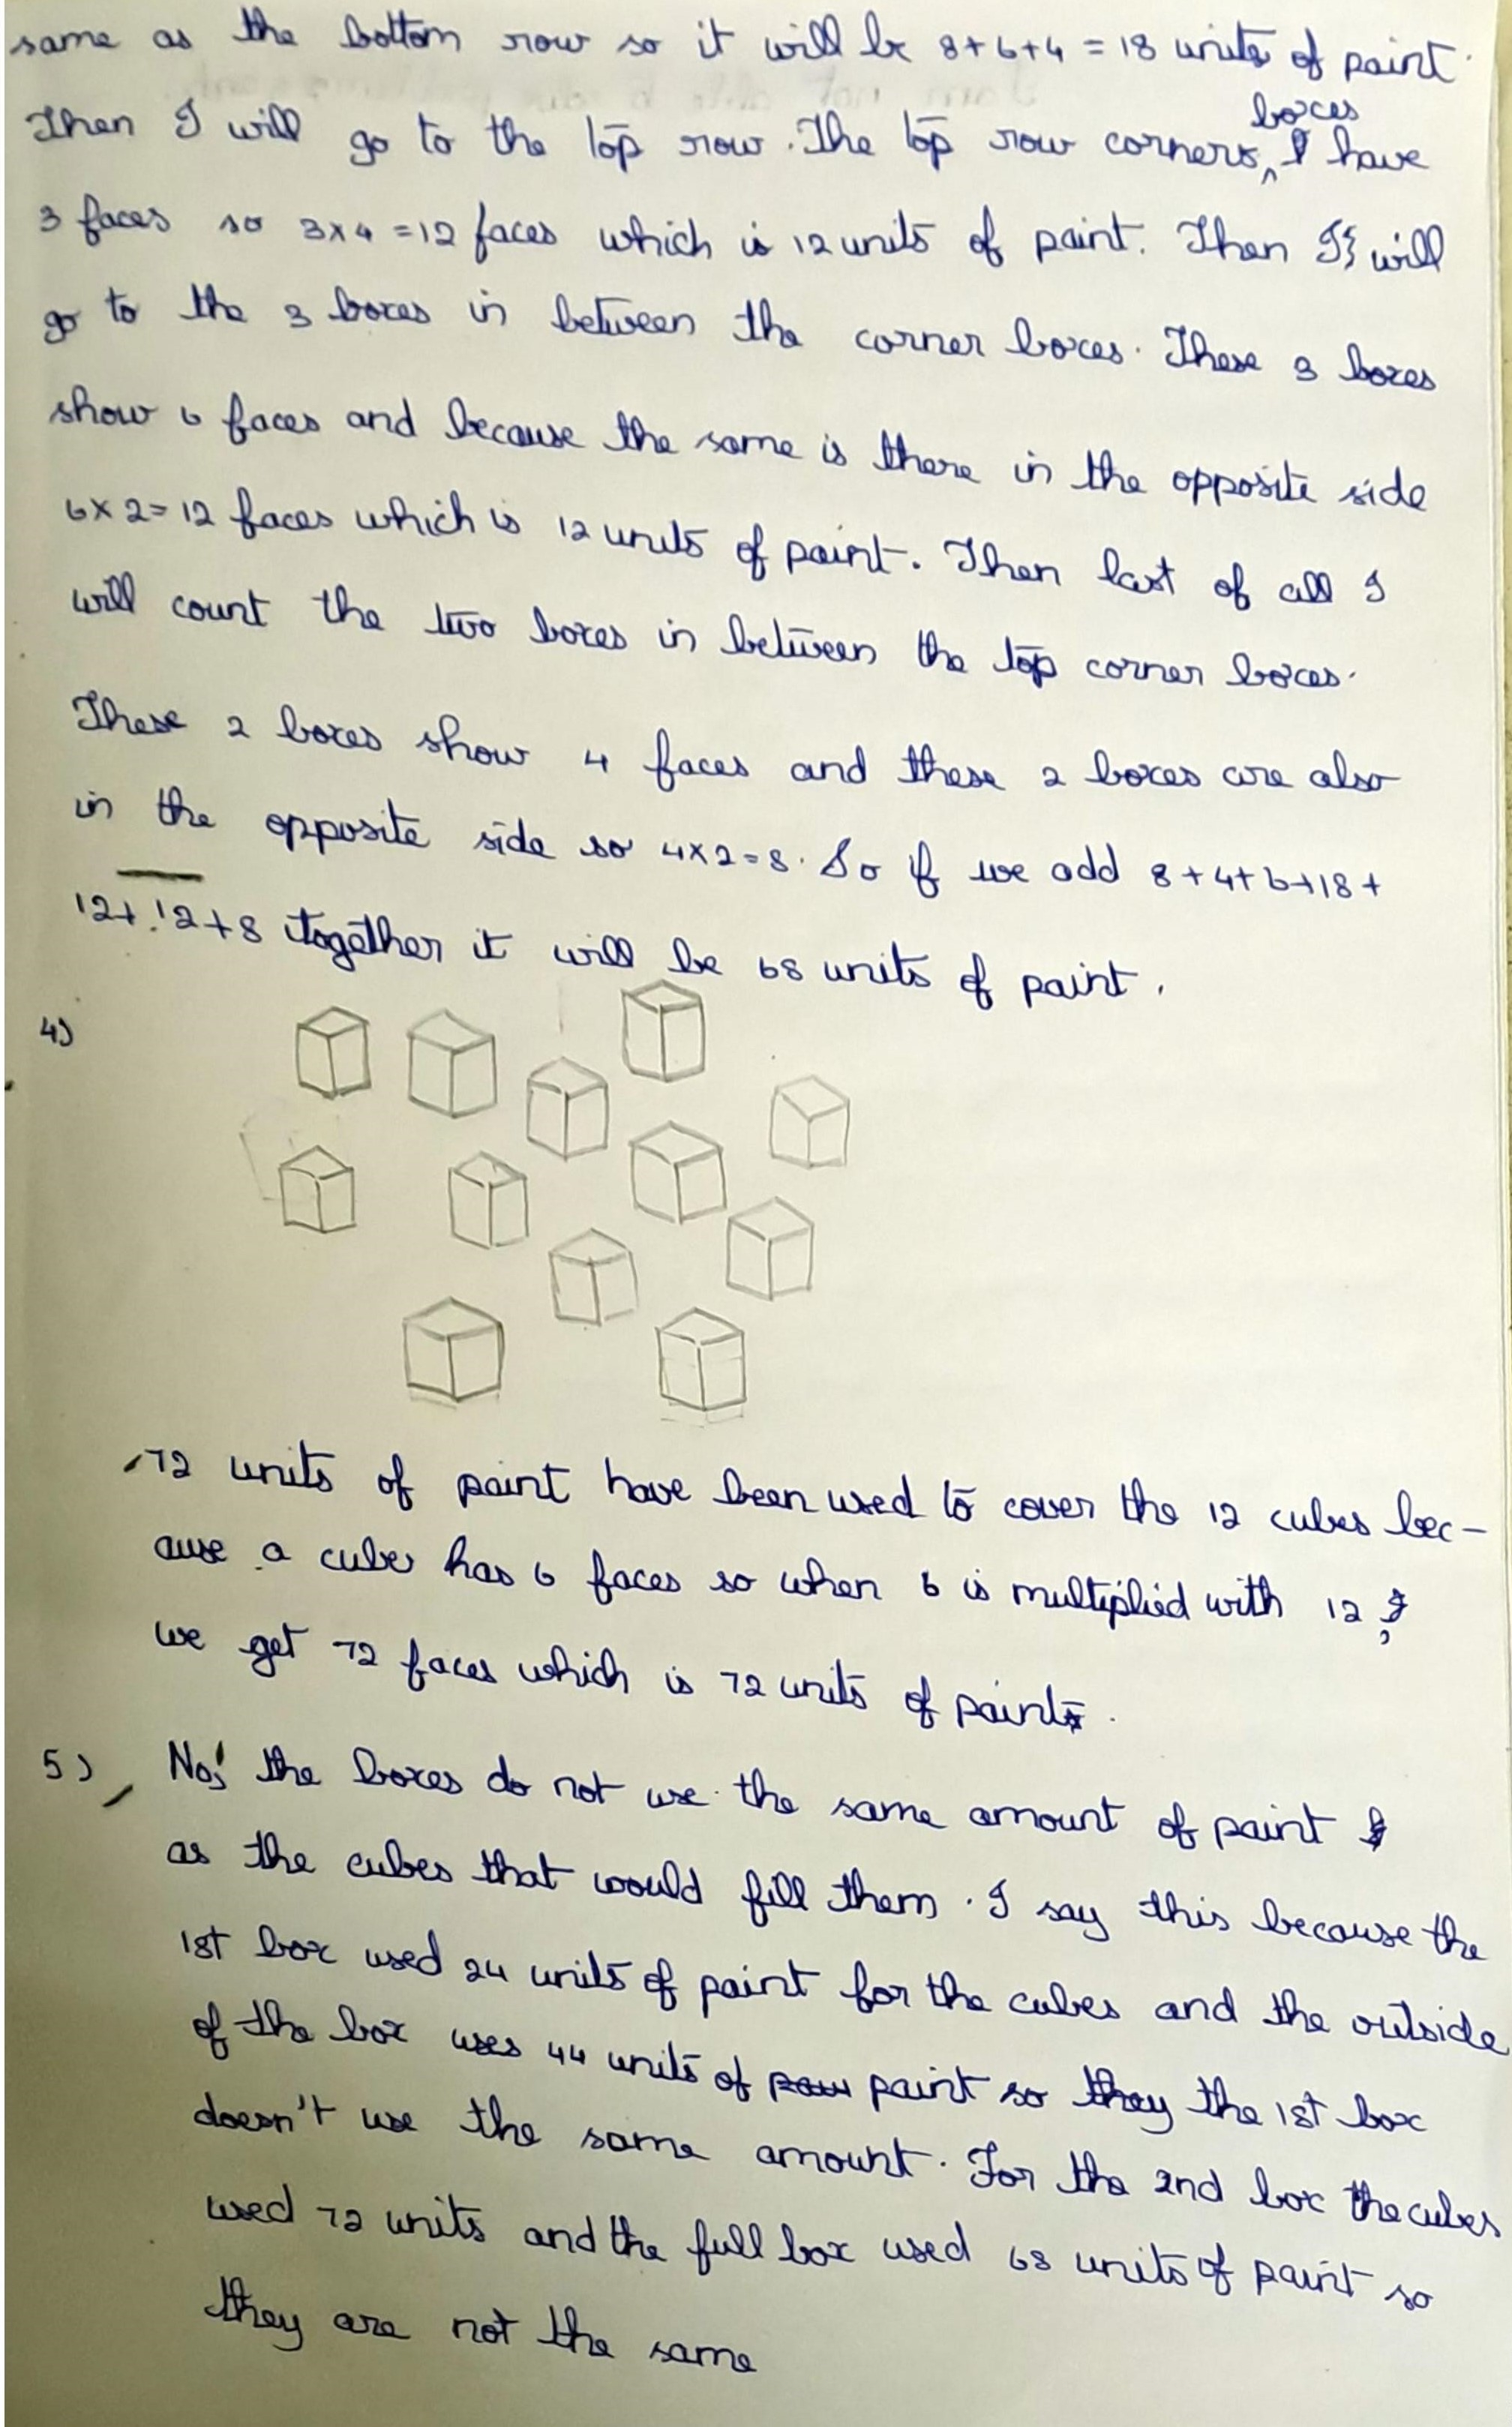 same as the bottom row so it will be 8+6+4 = 18 units of paint.
Then I will go to the top row. The top row corners boxes have
3 faces so 3x4 =12 faces which is 12 units of paint. Then I will
go to the 3 boxes in between the corner boxes. These 3 boxes
show 6 faces and because the same is there in the opposite side
6x2=12 faces which is 12 units of paint. Then last of all I
will count the two boxes in between the top corner boxes.
These 2 boxes show 4 faces and these 2 boxes are also
in the opposite side so 4x2=8. So if we add 8+4+6+18+
12+12+8 together it will be 68 units of paint.
4)
72 units of paint have been used to cover the 12 cubes bec-
ause a cube has 6 faces so when 6 is multiplied with 12,
we get 72 faces which is 72 units of paint.
5) No, the boxes do not use the same amount of paint
as the cubes that would fill them. I say this because the
1st box used 24 units of paint for the cubes and the outside
of the box uses 44 units of paint so they the 1st box
doesn't use the same amount. For the 2nd box the cubes
used 72 units and the full box used 68 units of paint so
they are not the same